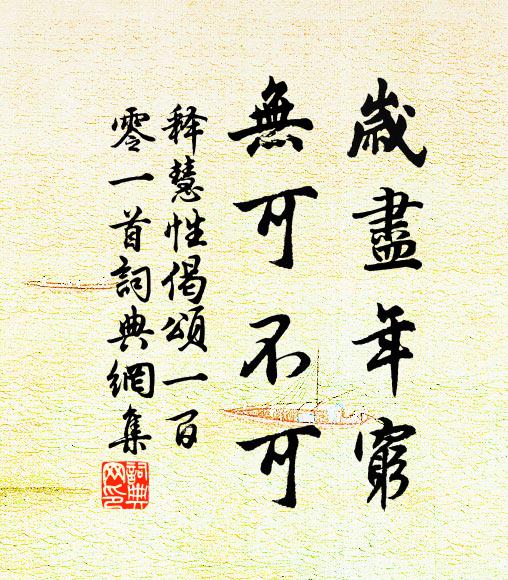 歲盡年窮
無可不可
釋慧性偈頌一百
零一首詞典網集
詞典网印